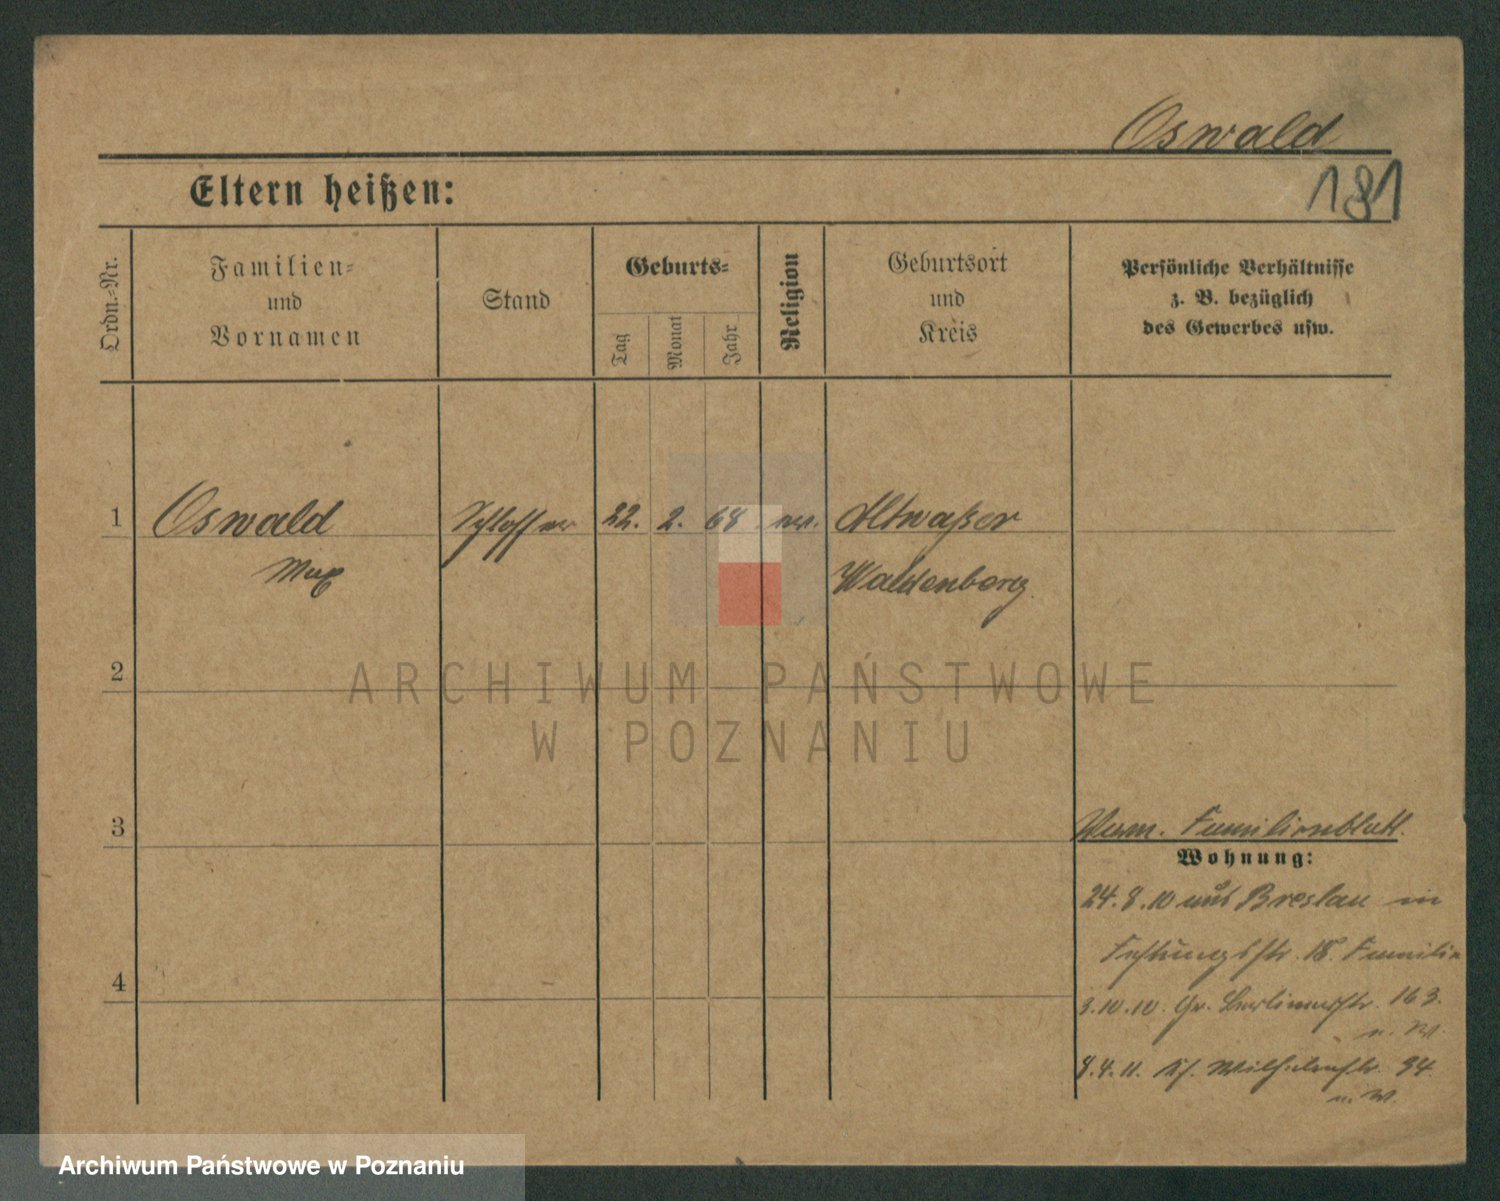 Oswald
181
Eltern heißen:
Ordn.-Nr.
Familien-
und
Vornamen
Stand
Geburts-
Tag
Monat
Jahr
Religion
Geburtsort
und
Kreis
Persönliche Verhältnisse
z. B. bezüglich
des Gewerbes usw.
1 Oswald Schlosser 22. 2. 68 ev. Altwaßer
Max Waldenberg
2
3
Familienblatt.
Wohnung:
24.8.10 aus Breslau in
Festungsstr. 18. Familie
3.10.10. Gr. Berlinerstr. 163.
n. W.
8.4.11. Wilhelmstr. 94
n. W.
4
ARCHIWUM PAŃSTWOWE
W POZNANIU
Archiwum Państwowe w Poznaniu